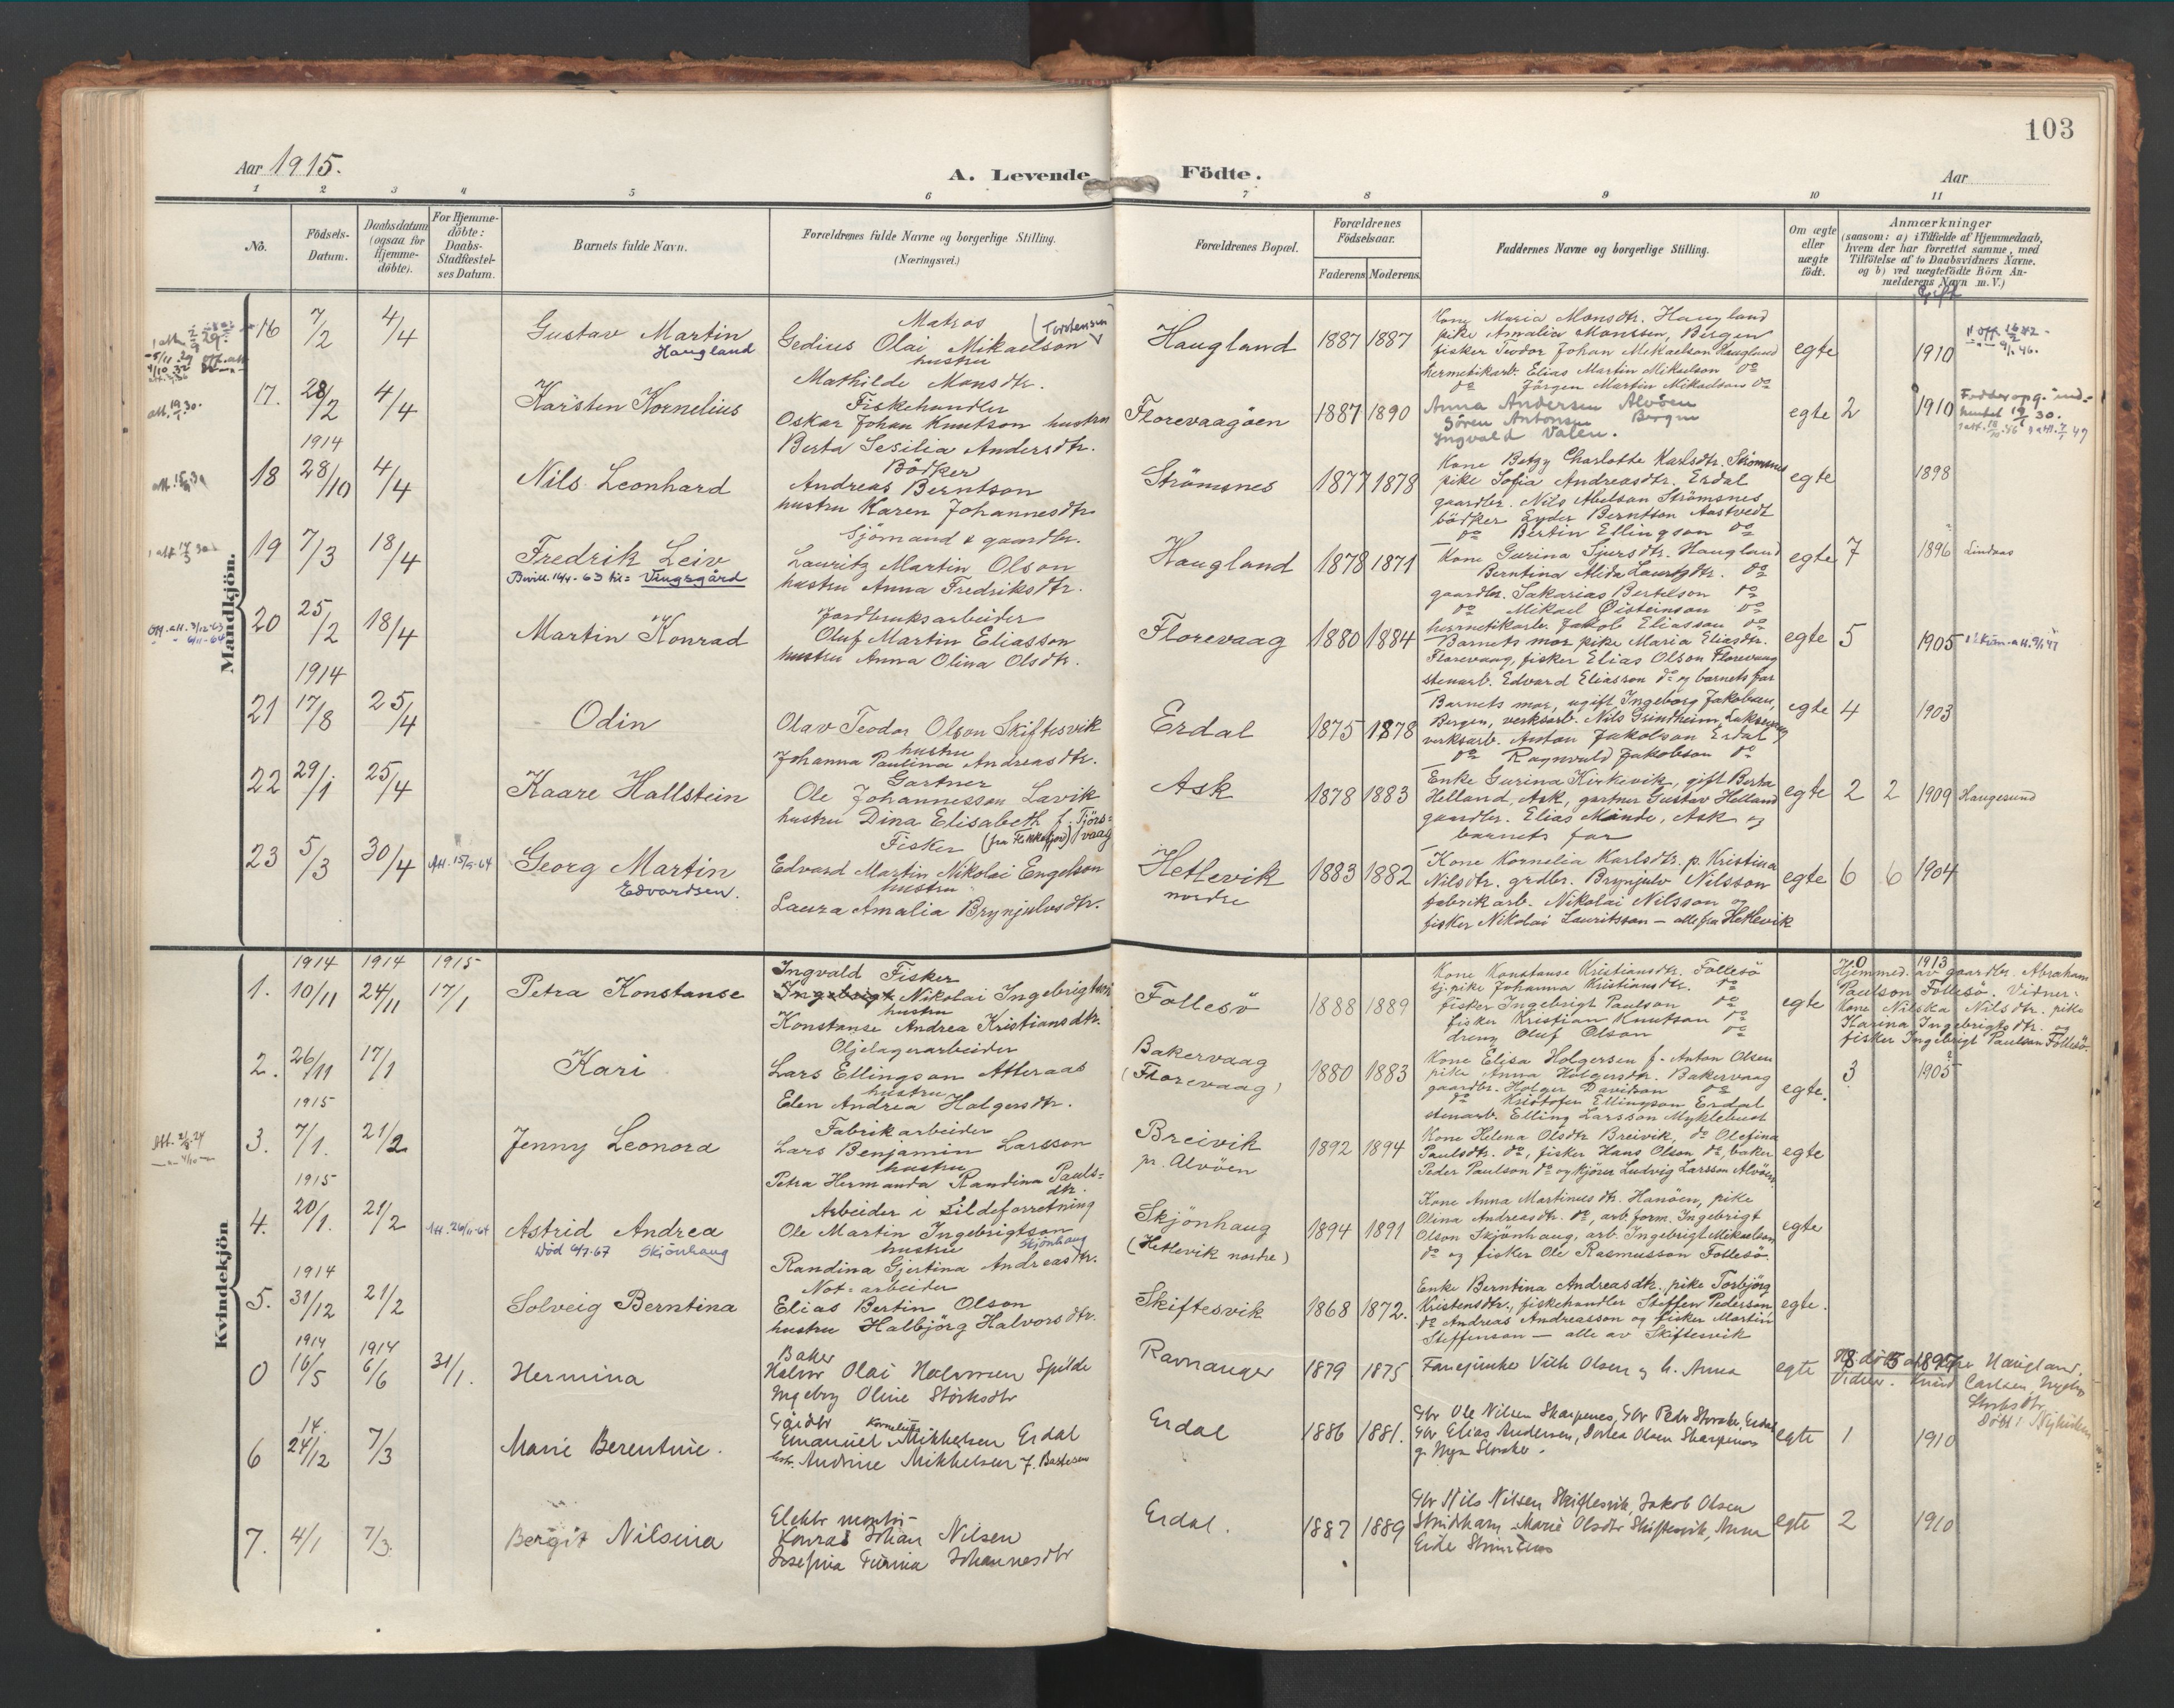 103
Aar 1915.
A. Levende Födte.
Aar
1 2 3 4 5 6 7 8 9 10 11
No.
Födsels-
Datum.
Daabsdatum
(ogsaa for
Hjemme-
döbte).
For Hjemme-
döbte:
Daabs-
Stadfæstel-
ses Datum.
Barnets fulde Navn.
Forældrenes fulde Navne og borgerlige Stilling.
(Næringsvei.)
Forældrenes Bopæl.
Forældrenes
Födselsaar.
Faderens Moderens
Faddernes Navne og borgerlige Stilling.
Om ægte
eller
uægte
födt.
Anmærkninger
(saasom: a) i Tilfælde af Hjemmedaab,
hvem der har forrettet samme, med
Tilföielse af to Daabsvidners Navne.
og b) ved uægtefödte Börn An-
melderens Navn m. V.)
Gift
Mandkjön.
16 7/2 4/4
Gustav Martin
Haugland
Matros
(Torstensen)
Gedius Olai Mikaelson
hustru
Mathilde Monsdtr.
Haugland
1887 1887
Kone Maria Monsdtr. Haugland
pike Amalia Monssen, Bergen
fisker Teodor Johan Mikaelson Haugland
hermetikarb. Elias Martin Mikaelson do
do Jörgen Martin Mikaelson do
egte
1910
17. 28/2 4/4
Karsten Kornelius
Fiskehandler
Oskar Johan Knutson hustru
Berta Sesilia Andersdtr.
Florevaagöen
1887 1890
Anna Andersen Alvöen
Sören Antonsen Bergen
Ingvald Valen.
egte 2
1910
18 1914 28/10 4/4
Nils Leonhard
Bödker
Andreas Berntson
hustru Karen Johannesdtr
Strömsnes
1877 1878
Kone Betzy Charlotte Karlsdtr. Strömsnes
pike Sofia Andreasdtr. Erdal
gaardbr. Nils Abelson Strömsnes
bödker Eyder Berntson Aastvedt
do Bertin Ellingson do
egte
1898
19 7/3 18/4
Fredrik Leiv
Bevill. 16/4-63 til= Vingsgård
Sjömand & gaardbr.
Lauritz Martin Olson
hustru Anna Fredriksdtr.
Haugland
1878 1871
Kone Gurina Sjursdtr. Haugland
Berntina Alida Lauritzdtr. do
gaardbr. Sakarias Bertelson do
do Mikael Øisteinson do
hermetikarb. Jakob Eliasson do
egte 7
1896 Lindaas
20 25/2 18/4
Martin Konrad
Jordbruksarbeider
Oluf Martin Eliasson
hustru Anna Olina Olsdtr.
Florevaag
1880 1884
Barnets mor pike Maria Eliasdtr.
Florevaag, fisker Elias Olson Florevaag
stenarb. Edvard Eliasson do og barnets far
egte 5
1905
21 1914 17/8 25/4
Odin
Olav Teodor Olson Skiftesvik
hustru
Johanna Paulina Andreasdtr.
Erdal
1875 1878
Barnets mor, ugift Ingeborg Jakobsen,
Bergen, verksarb. Nils Grindheim, Laksevaag
verksarb. Anton Jakobson Erdal
do Ragnvald Jakobson do
egte 4
1903
22 29/1 25/4
Kaare Hallstein
Gartner
Ole Johannesson Lavik
hustru Dina Elisabeth f. Tjörs=
vaag
(fra Flekkefjord)
Ask
1878 1883
Enke Gurina Kirkevik, gift Berta
Helland, Ask, gartner Gustav Helland
gaardbr. Elias Mande, Ask og
barnets far
egte 2 2
1909 Haugesund
23 5/3 30/4 Att. 15/5-64
Georg Martin
Edvardsen.
Fisker
Edvard Martin Nikolai Engelson
hustru
Laura Amalia Brynjulvsdtr.
Hetlevik
nordre
1883 1882
Kone Kornelia Karlsdtr. p. Kristina
Nilsdtr. grdbr. Brynjulv Nilsson
fabrikarb. Nikolai Nilsson og
fisker Nikolai Lauritsson – alle fra Hetlevik
egte 6 6
1904
Kvindekjön
1. 1914 10/11 1914 24/11 1915 17/1
Petra Konstanse
Ingvald Fisker
Ingebrigt Nikolai Ingebrigtson
hustru
Konstanse Andrea Kristiansdtr.
Follesö
1888 1889
Kone Konstanse Kristiansdtr. Follesö
tj. pike Johanna Kristiansdtr. do
fisker Ingebrigt Paulson do
fisker Kristian Knutson do
dreng Oluf Olson do
egte
0 1913
Hjemmed. av gaardbr. Abraham
Paulson Follesö. Vidner:
Kone Nilska Nilsdtr. pike
Karina Ingebrigtsdtr. og
fisker Ingebrigt Paulson Follesö.
2. 26/11 17/1
Kari
Oljelagerarbeider
Lars Ellingson Atteraas
hustru
Elen Andrea Holgersdtr.
Bakervaag
(Florevaag)
1880 1883
Kone Elisa Holgersen f. Anton Olsen
pike Anna Holgersdtr. Bakervaag
gaardbr. Holger Davidson do
do Kristofer Ellingson Erdal
stenarb. Elling Larsson Myklebust
egte. 3
1905
3. 1915 7/1. 21/2
Jenny Leonora
Fabrikarbeider
Lars Benjamin Larsson
hustru
Petra Hermanda Randina Pauls=
dtr.
Breivik
pr. Alvöen
1892 1894
Kone Helena Olsdtr Breivik, do Olefina
Paulsdtr. do, fisker Hans Olson do, baker
Peder Paulson do og kjörer Ludvig Larsson Alvöen
egte
4. 1915 20/1. 21/2 Att. 26/11-64
Astrid Andrea
Död 6/7-67 Skjönhaug
Arbeider i Sildeforretning
Ole Martin Ingebrigtson
Skjönhaug
hustru
Randina Gjertina Andreasdtr.
Skjönhaug
(Hetlevik nordre)
1894 1891
Kone Anna Martinusdtr. Hanöen, pike
Olina Andreasdtr. do, arb. form. Ingebrigt
Olson Skjönhaug, arb. Ingebrigt Mikaelson
do og fisker Ole Rasmusson Follesö.
egte
5. 1914 31/12 21/2
Solveig Berntina
Not=arbeider
Elias Bertin Olson
hustru Halbjörg Halvorsdtr.
Skiftesvik
1868 1872.
Enke Berntina Andreasdtr., pike Torbjörg
Kristensdtr., fiskehandler Steffen Pederson
do Andreas Andreasson og fisker Martin
Steffenson – alle av Skiftesvik
egte.
0 1914 16/5 1914 6/6 31/1.
Hermina
Baker
Olai Spilde
Ingeborg Oline
Ravnanger
1879 1875
Olsen og h. Anna
egte
6 14. 24/12 7/3
Marie Berentine.
Gårdbr
Emanuel Kornelius Mikkelsen Erdal
hstr. Andrine Mikkelsen f. Bertesen
Erdal
1886 1881.
Gbr Ole Nilsen Skarpenes, Gbr Peder Storake, Erdal
Gbr Elias Andersen, Dortea Olsen Skarpenes
egte 1
1910
7. 4/1 7/3.
Bergit Nilsina
Elektr montör
Konrad Johan Nilsen
Josefina Johannesdtr
Erdal.
1887 1889
Gbr Nils Nilsen Skiftesvik, Jakob Olsen
Marie Olsdtr Skiftesvik, Anna
egte 2
1910